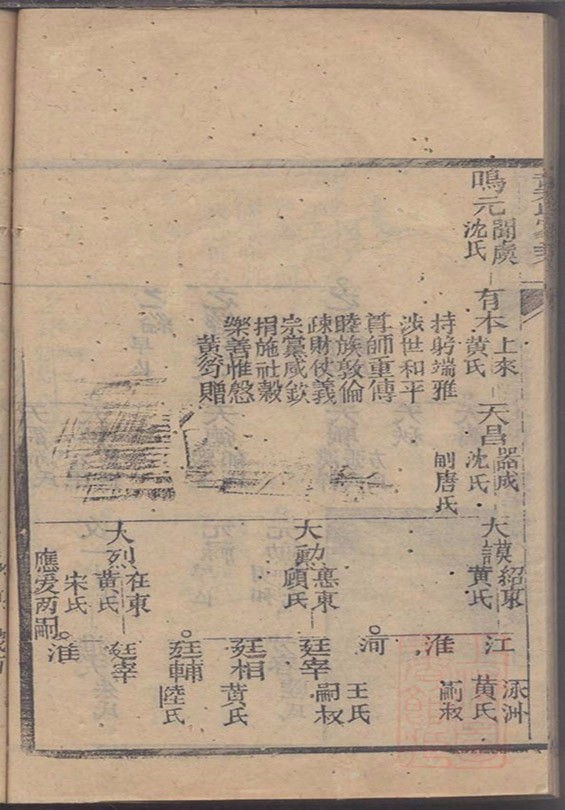 鳴元 聞虞
沈氏
有本 上來
黃氏
持躬端雅
涉世和平
尊師重傅
睦族敦倫
疎財仗義
宗黨咸欽
捐施社穀
樂善惟慇
黃芻贈
天昌 器咸
沈氏
副唐氏
大謨 紹東
黃氏
江 泳洲
黃氏
淮 嗣叔
河 王氏
大勳 憲東
顧氏
廷宰 嗣叔
廷相 黃氏
廷輔 陸氏
大烈 在東
黃氏
宋氏
應爱两嗣
廷宰
淮